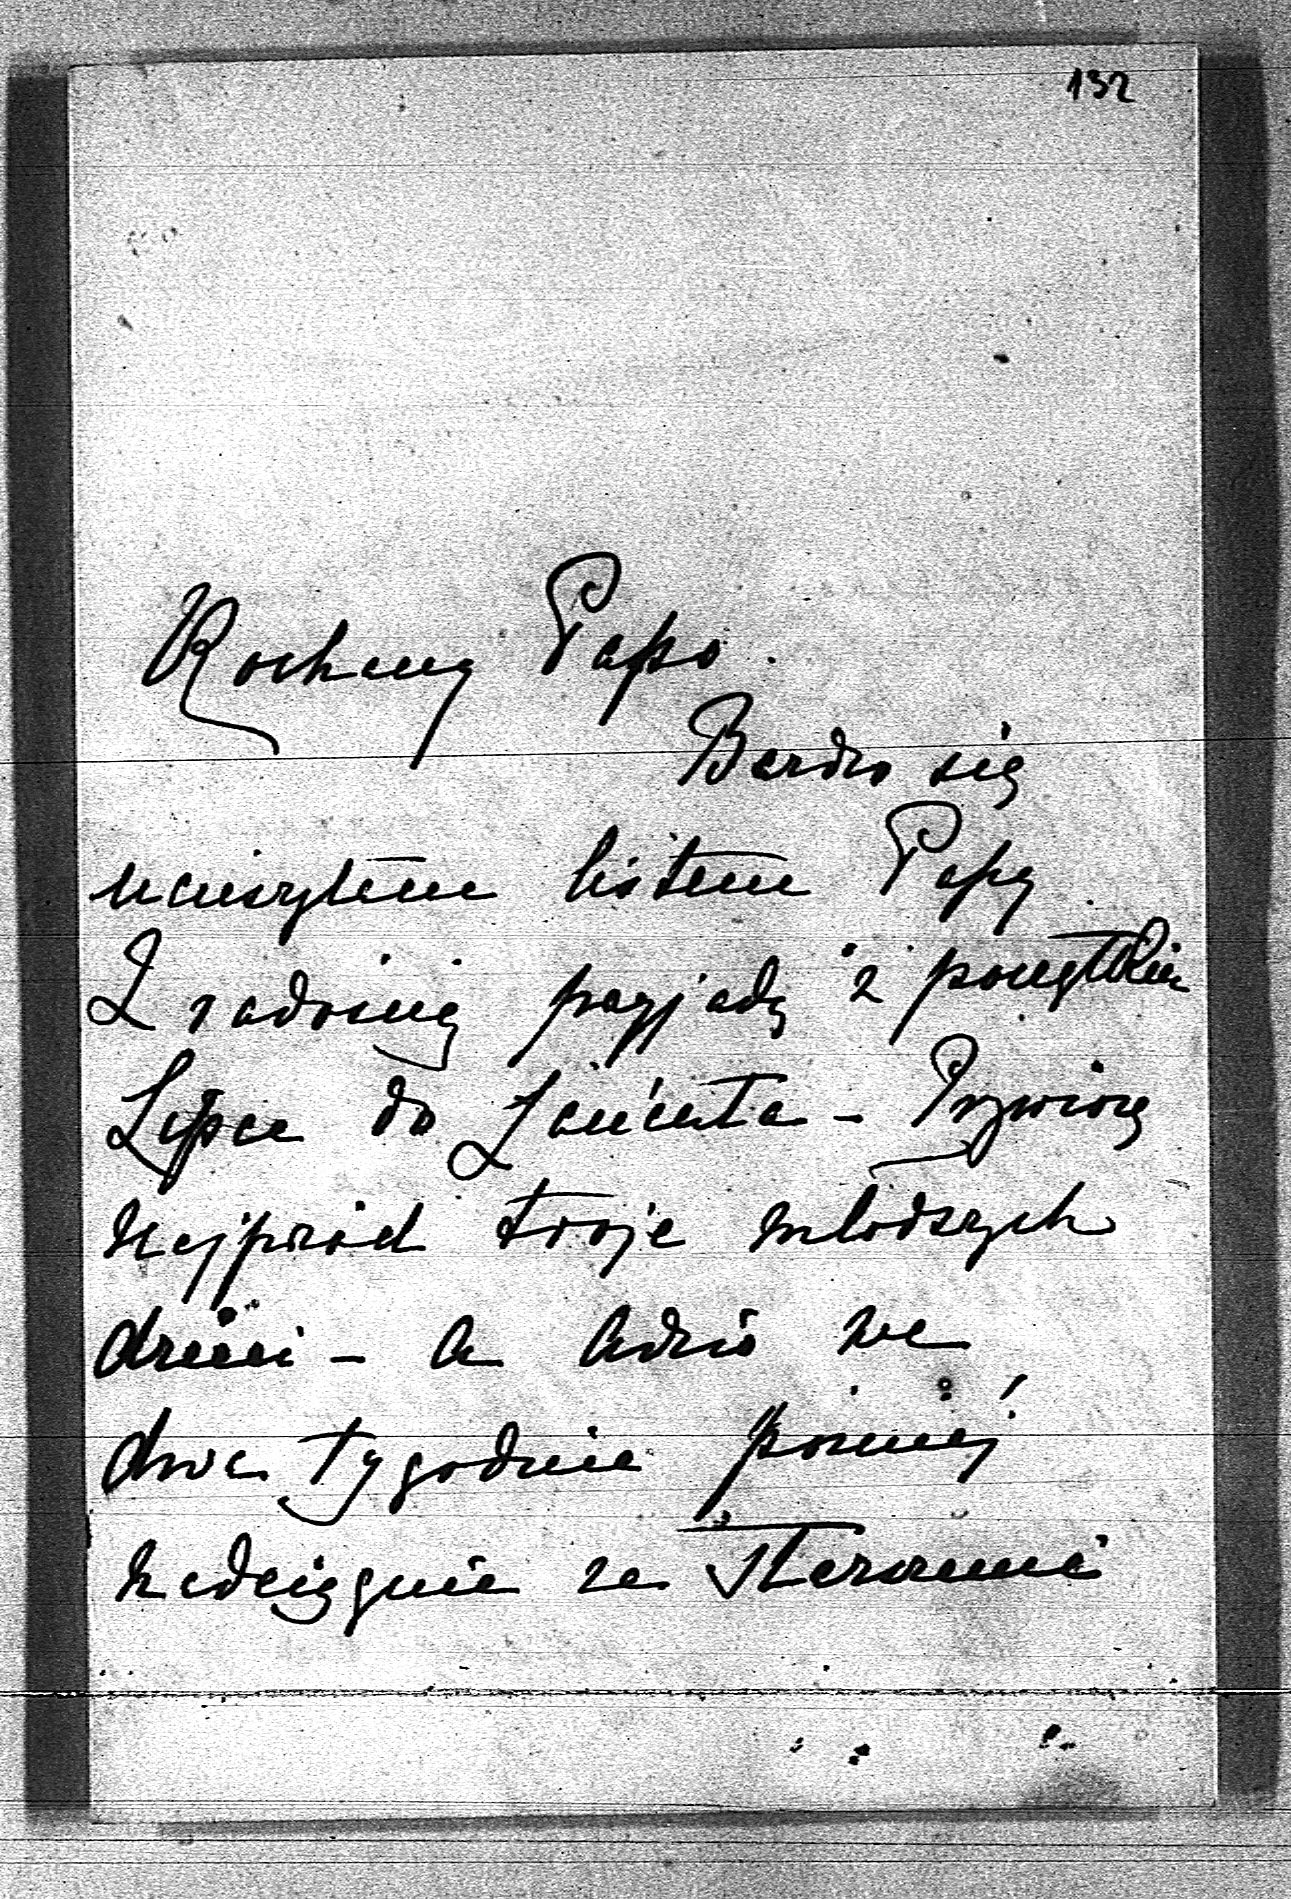 132
Kochany Papo.
Bardzo się
ucieszyłem listem Papy
Z radością przyjadę z początkiem
Lipca do Łańcuta – Przywiozę
najprzód troje młodszych
dzieci – a Adzio we
dwa tygodnie poźniéj
nadciągnie ze Starszemi